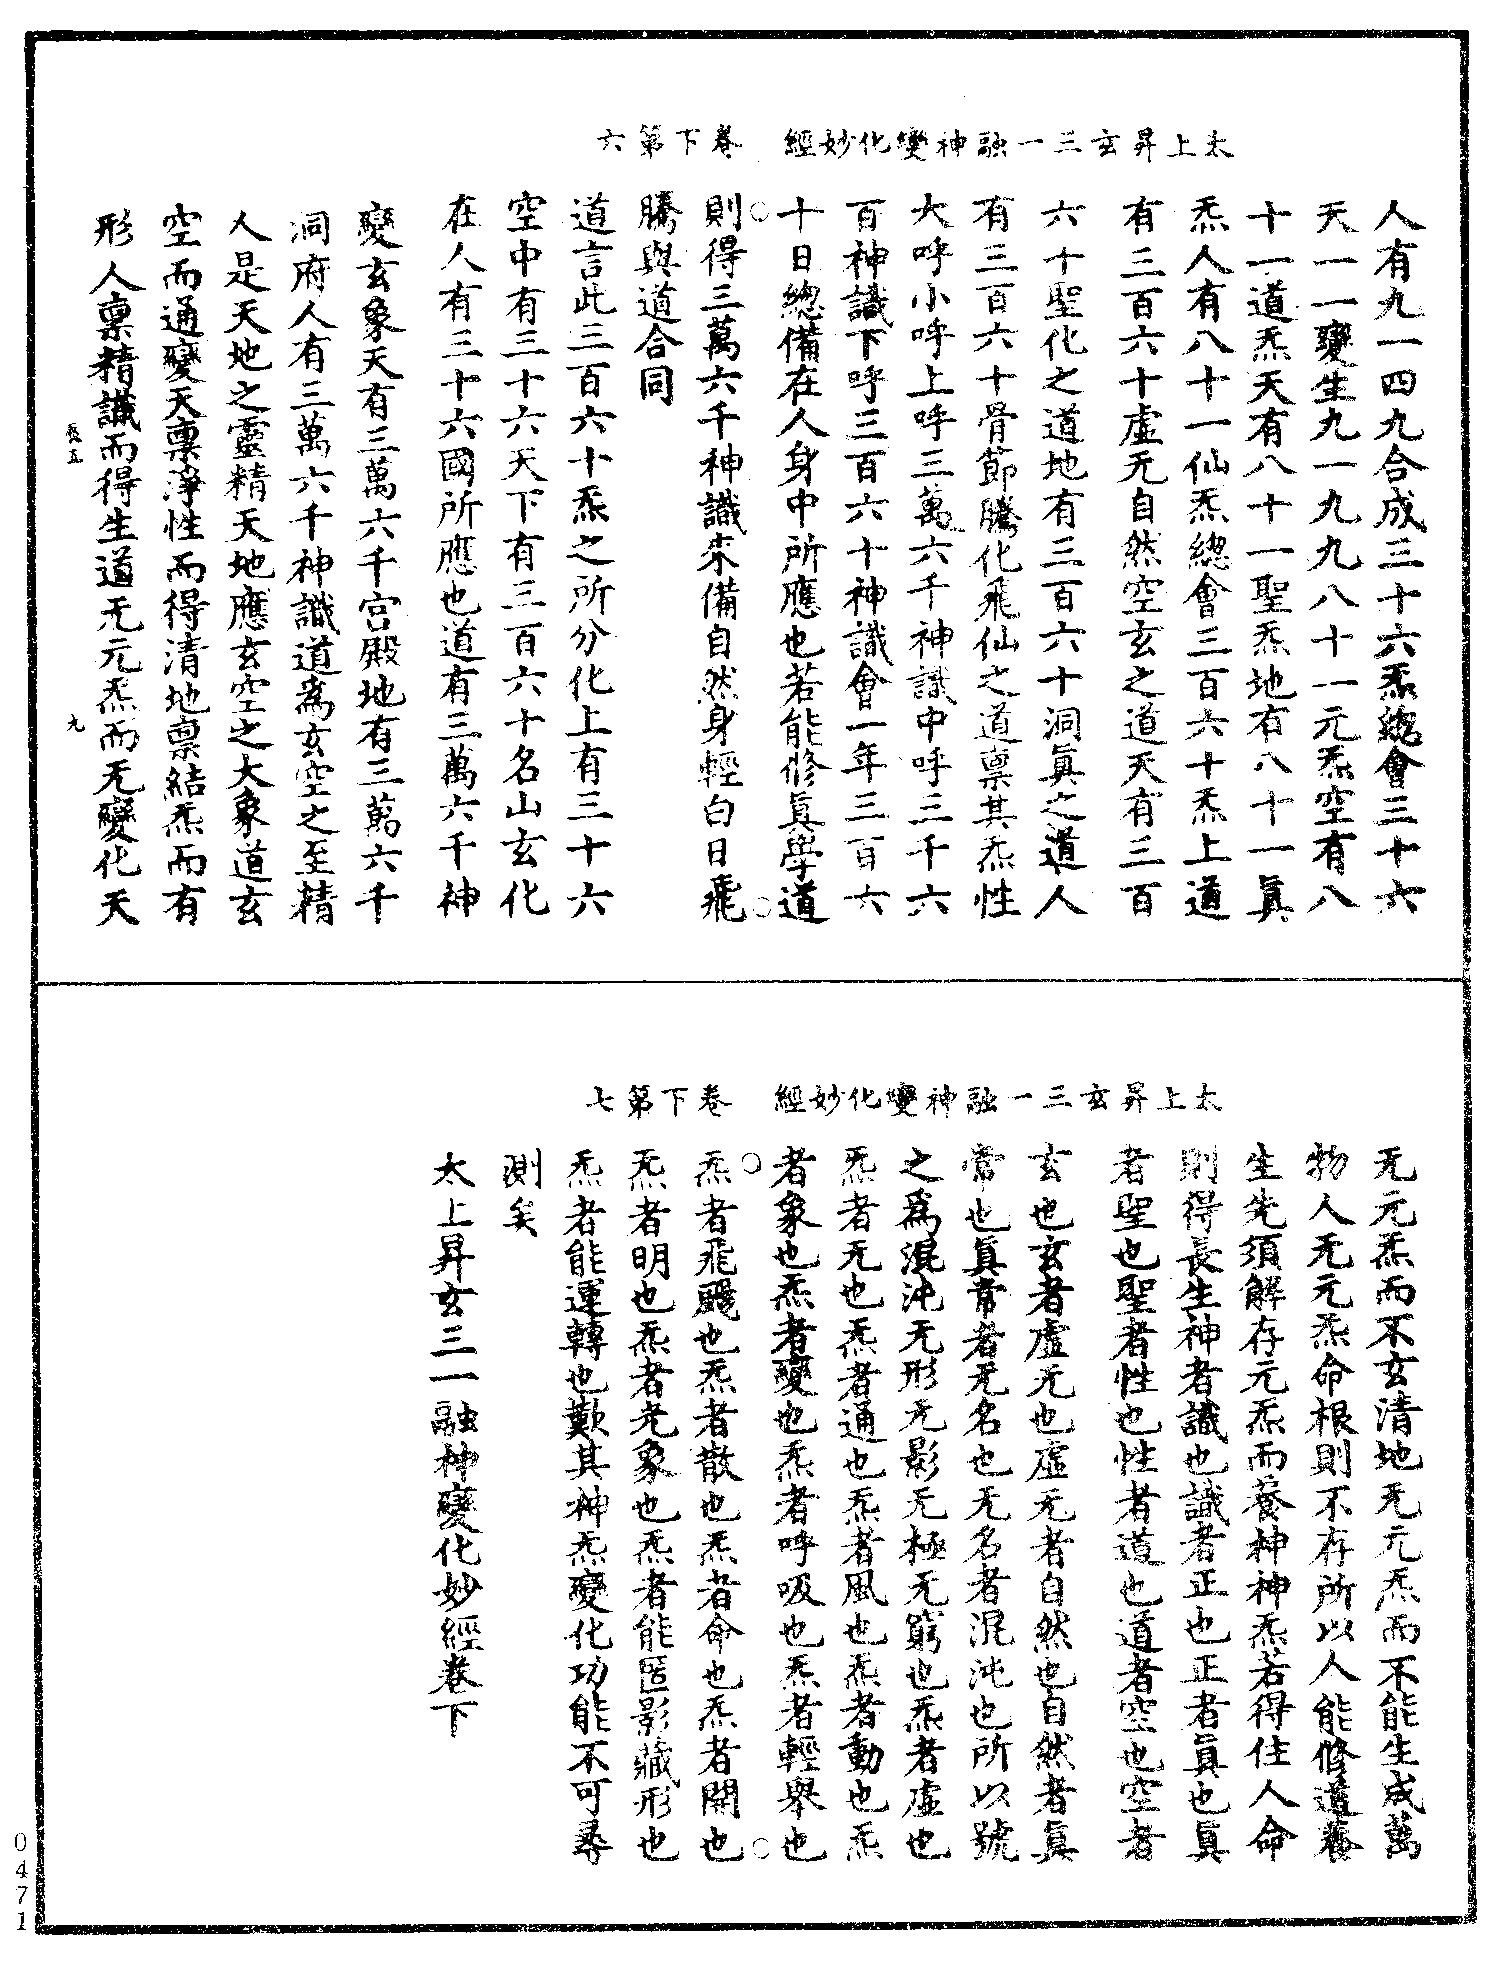 太上昇玄三一融神變化妙經　卷下第六
人有九一四九合成三十六炁總會三十六
天一一變生九一九九八十一元炁空有八
十一道炁天有八十一聖炁地有八十一眞
炁人有八十一仙炁總會三百六十炁上道
有三百六十虛无自然空玄之道天有三百
六十聖化之道地有三百六十洞眞之道人
有三百六十骨節騰化飛仙之道禀其炁性
大呼小呼上呼三萬六千神識中呼三千六
百神識下呼三百六十神識會一年三百六
十日總備在人身中所應也若能修眞學道
則得三萬六千神識來備自然身輕白日飛
騰與道合同
道言此三百六十炁之所分化上有三十六
空中有三十六天下有三百六十名山玄化
在人有三十六國所應也道有三萬六千神
變玄象天有三萬六千宮殿地有三萬六千
洞府人有三萬六千神識道爲玄空之至精
人是天地之靈精天地應玄空之大象道玄
空而通變天禀淨性而得清地禀結炁而有
形人禀精識而得生道无元炁而无變化天
九
太上昇玄三一融神變化妙經　卷下第七
无元炁而不玄清地无元炁而不能生成萬
物人无元炁命根則不存所以人能修道養
生先須解存元炁而養神神炁若得住人命
則得長生神者識也識者正也正者眞也眞
者聖也聖者性也性者道也道者空也空者
玄也玄者虛无也虛无者自然也自然者眞
常也眞常者无名也无名者混沌也所以號
之爲混沌无形无影无極无窮也炁者虛也
炁者无也炁者通也炁者風也炁者動也炁
者象也炁者變也炁者呼吸也炁者輕舉也
炁者飛颺也炁者散也炁者命也炁者開也
炁者明也炁者光象也炁者能匿影藏形也
炁者能運轉也歎其神炁變化功能不可尋
測矣
太上昇玄三一融神變化妙經卷下
0471